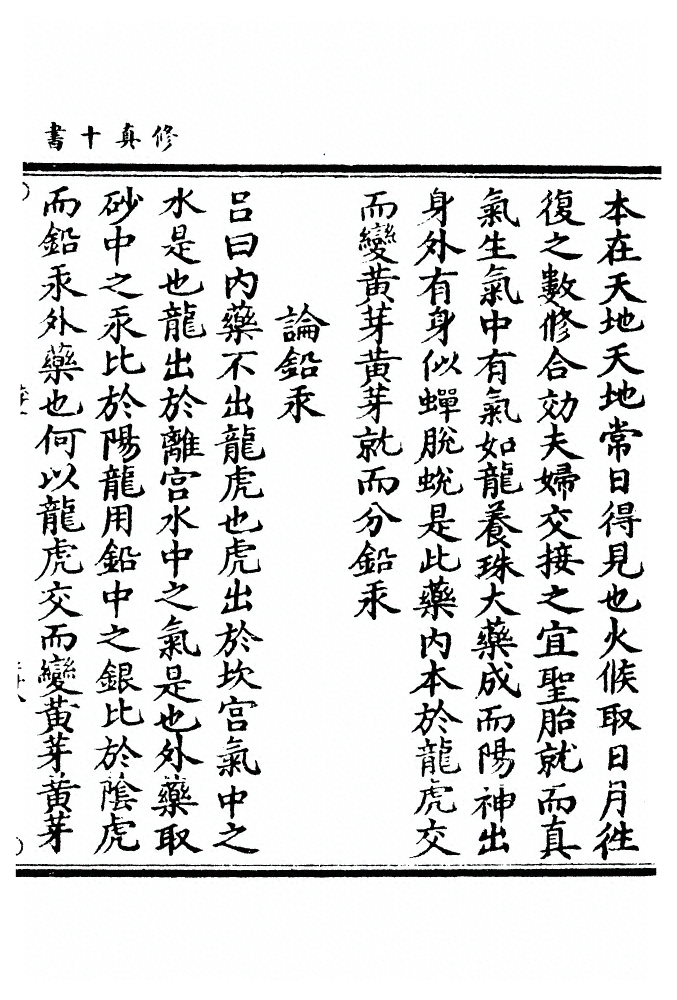 修真十書
本在天地天地常日得見也火候取日月徃
復之數修合効夫婦交接之宜聖胎就而真
氣生氣中有氣如龍養珠大藥成而陽神出
身外有身似蟬脫蛻是此藥內本於龍虎交
而變黃芽黃芽就而分鉛汞
論鉛汞
吕曰內藥不出龍虎也虎出於坎宫氣中之
水是也龍出於離宫水中之氣是也外藥取
砂中之汞比於陽龍用鉛中之銀比於陰虎
而鉛汞外藥也何以龍虎交而變黃芽黃芽